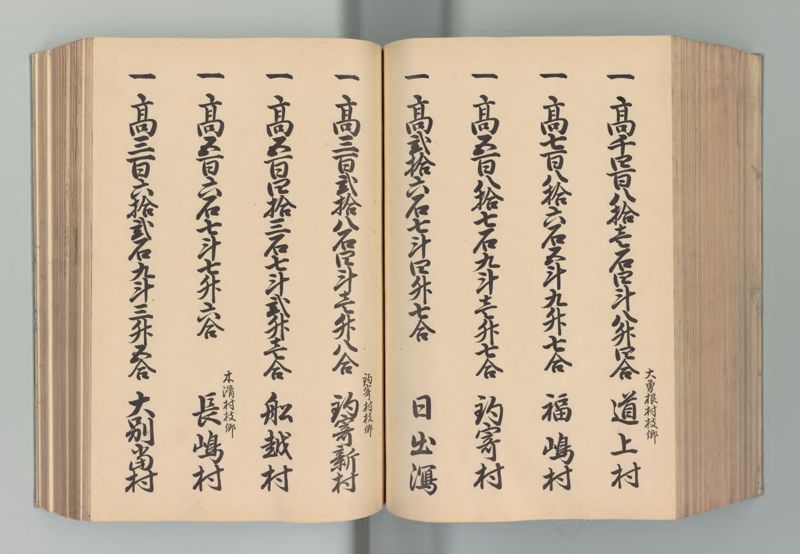 大勇根村枝郷
一 高千四百八拾壱石四斗八升四合 道上村
一 高七百八拾六石五斗九升七合 福嶋村
一 高五百八拾七石九斗壱升七合 釣寄村
一 高弐拾六石七斗四升七合 日出潟
釣寄村枝郷
一 高三百弐拾八石四斗壱升八合 釣寄新村
一 高五百四拾三石七斗弐升壱合 船越村
木滑村枝郷
一 高五百六石七斗七升六合 長嶋村
一 高三百六拾弐石九斗三升五合 大別當村